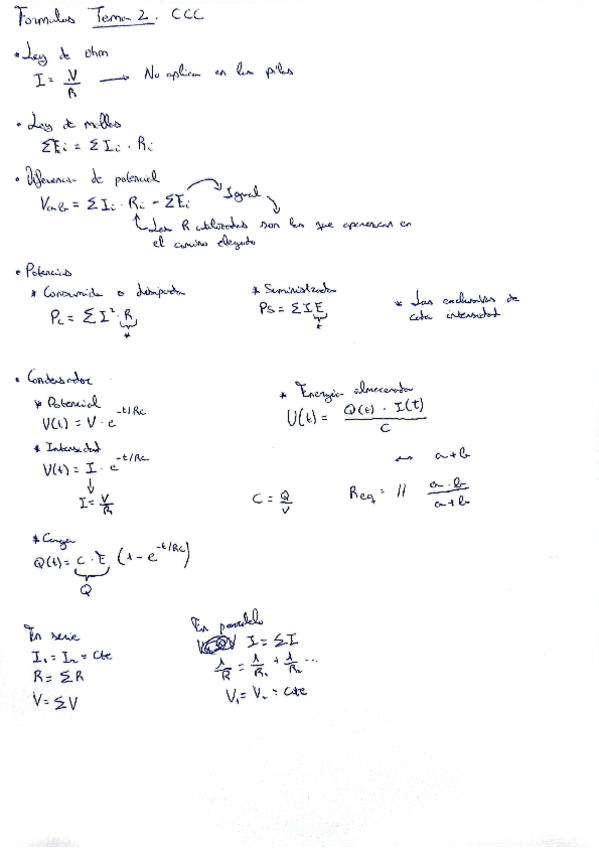 Formulas Tema 2. CCC
• Ley de ohm
I = V/R → No aplicar en las pilas
• Ley de mallas
ΣEi = ΣIi · Ri
• Diferencia de potencial
Va-b = ΣIi · Ri - ΣEi → Igual
Las R utilizadas son las que aparezcan en
el camino elegido
• Potencias
* Consumida o disipada
Pc = ΣI² · R
*
* Suministrada
Ps = ΣIE
*
* Las exclusivas de
cada intensidad
• Condensador
* Potencial
V(t) = V · e^-t/RC
* Intensidad
V(t) = I · e^-t/RC
↓
I = V/R
* Energia almacenada
U(t) = Q(t) · I(t) / C
↔ a+b
C = Q/V
Req = // a·b / a+b
* Carga
Q(t) = C · E (1 - e^-t/RC)
Q
En serie
I₁ = I₂ = cte
R = ΣR
V = ΣV
En paralelo
I = ΣI
1/R = 1/R₁ + 1/R₂ ...
V₁ = V₂ = cte